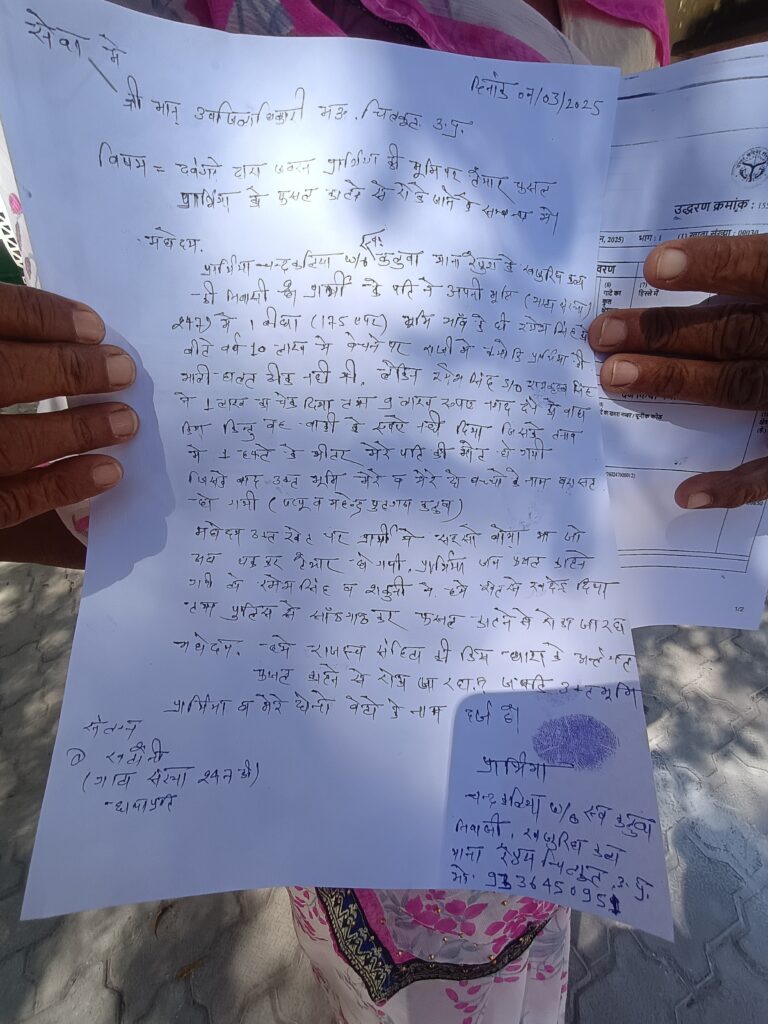 सेवा में
दिनांक 07/03/2025
श्री मान् उपजिलाधिकारी मऊ, चित्रकूट उ.प्र.
विषय = दबंगो द्वारा जबरन प्रार्थिया की भूमि पर तैयार फसल
प्रार्थिया को फसल काटने से रोके जाने के सम्बन्ध में।
महोदय,
प्रार्थिया चन्द्रकलिया w/o स्व0 कलुवा थाना रैपुरा के खजुरिहा कला
की निवासी है। प्रार्थी के पति ने अपनी भूमि (गाटा संख्या)
2479 में 1 बीघा (175 एयर) भूमि गाँव के ही रमेश सिंह को
बीते वर्ष 10 लाख में बेचने पर राजी थे क्योकि प्रार्थिया की
माली हालत ठीक नही थी, लेकिन रमेश सिंह S/O सिंह
ने 1 लाख का चेक दिया तथा 9 लाख रुपए नगद देने का वादा
किया किन्तु वह बाकी के रुपये नही दिया जिसके तनाव
में 1 हफ्ते के भीतर मेरे पति की मौत हो गयी
जिसके बाद उक्त भूमि मेरे व मेरे दो बच्चो के नाम वरासत
हो गयी ( व महेन्द्र पुत्रगण कलुवा)
महोदय उक्त खेत पर प्रार्थी ने सरसो बोया था जो
अब पककर तैयार हो गयी, प्रार्थिया जब फसल काटने
गयी तो रमेश सिंह व ने हमे खेत से खदेड़ दिया
तथा पुलिस से साँठगाठ कर फसल काटने से रोका जा रहा
महोदय, हमे राजस्व संहिता की किस धारा के अन्तर्गत
फसल काटने से रोका जा रहा है जबकि उक्त भूमि
प्रार्थिया व मेरे दोनो बेटो के नाम दर्ज है।
संलग्न
① खतौनी
(गाटा संख्या 2479 की)
छायाप्रति
प्रार्थिया
चन्द्रकलिया w/o स्व कलुवा
निवासी, खजुरिहा कला
थाना रैपुरा चित्रकूट उ.प्र.
मो. 9336450951
उद्धरण क्रमांक : 155
, 2025) भाग : 1 (1) खाता संख्या : 00030
1/2